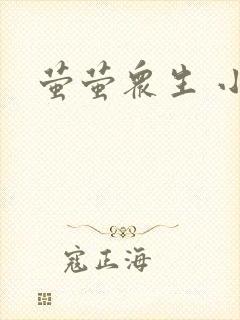 萤萤众生 小
寇正海